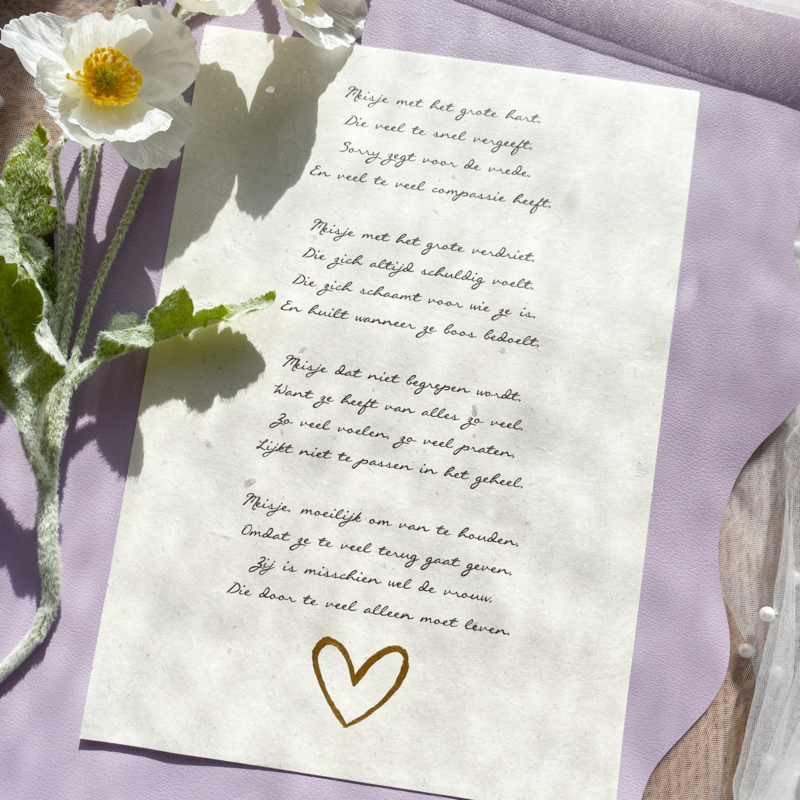 Meisje met het grote hart.
Die veel te snel vergeeft.
Sorry zegt voor de vrede.
En veel te veel compassie heeft.
Meisje met het grote verdriet.
Die zich altijd schuldig voelt.
Die zich schaamt voor wie ze is.
En huilt wanneer ze boos bedoelt.
Meisje dat niet begrepen wordt.
Want ze heeft van alles zo veel.
Zo veel voelen, zo veel praten.
Lijkt niet te passen in het geheel.
Meisje, moeilijk om van te houden.
Omdat ze te veel terug gaat geven.
Zij is misschien wel de vrouw.
Die door te veel alleen moet leven.